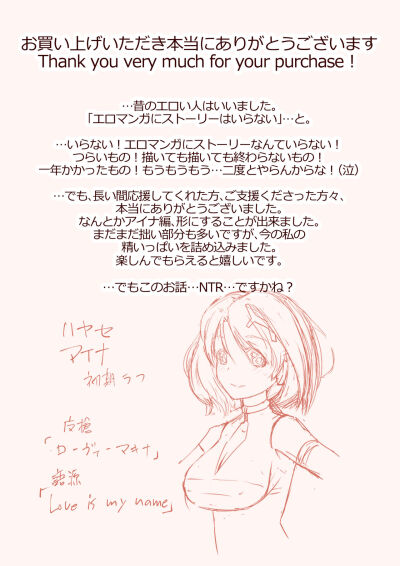 お買い上げいただき本当にありがとうございます
Thank you very much for your purchase！
…昔のエロい人はいいました。
「エロマンガにストーリーはいらない」…と。
…いらない！エロマンガにストーリーなんていらない！
つらいもの！描いても描いても終わらないもの！
一年かかったもの！もうもうもう…二度とやらんからな！（泣）
…でも、長い間応援してくれた方、ご支援くださった方々、
本当にありがとうございました。
なんとかアイナ編、形にすることが出来ました。
まだまだ拙い部分も多いですが、今の私の
精いっぱいを詰め込みました。
楽しんでもらえると嬉しいです。
…でもこのお話…NTR…ですかね？
ハヤセ
アイナ
初期ラフ
「ローヴィーマキナ」
語源
「Love is my name」